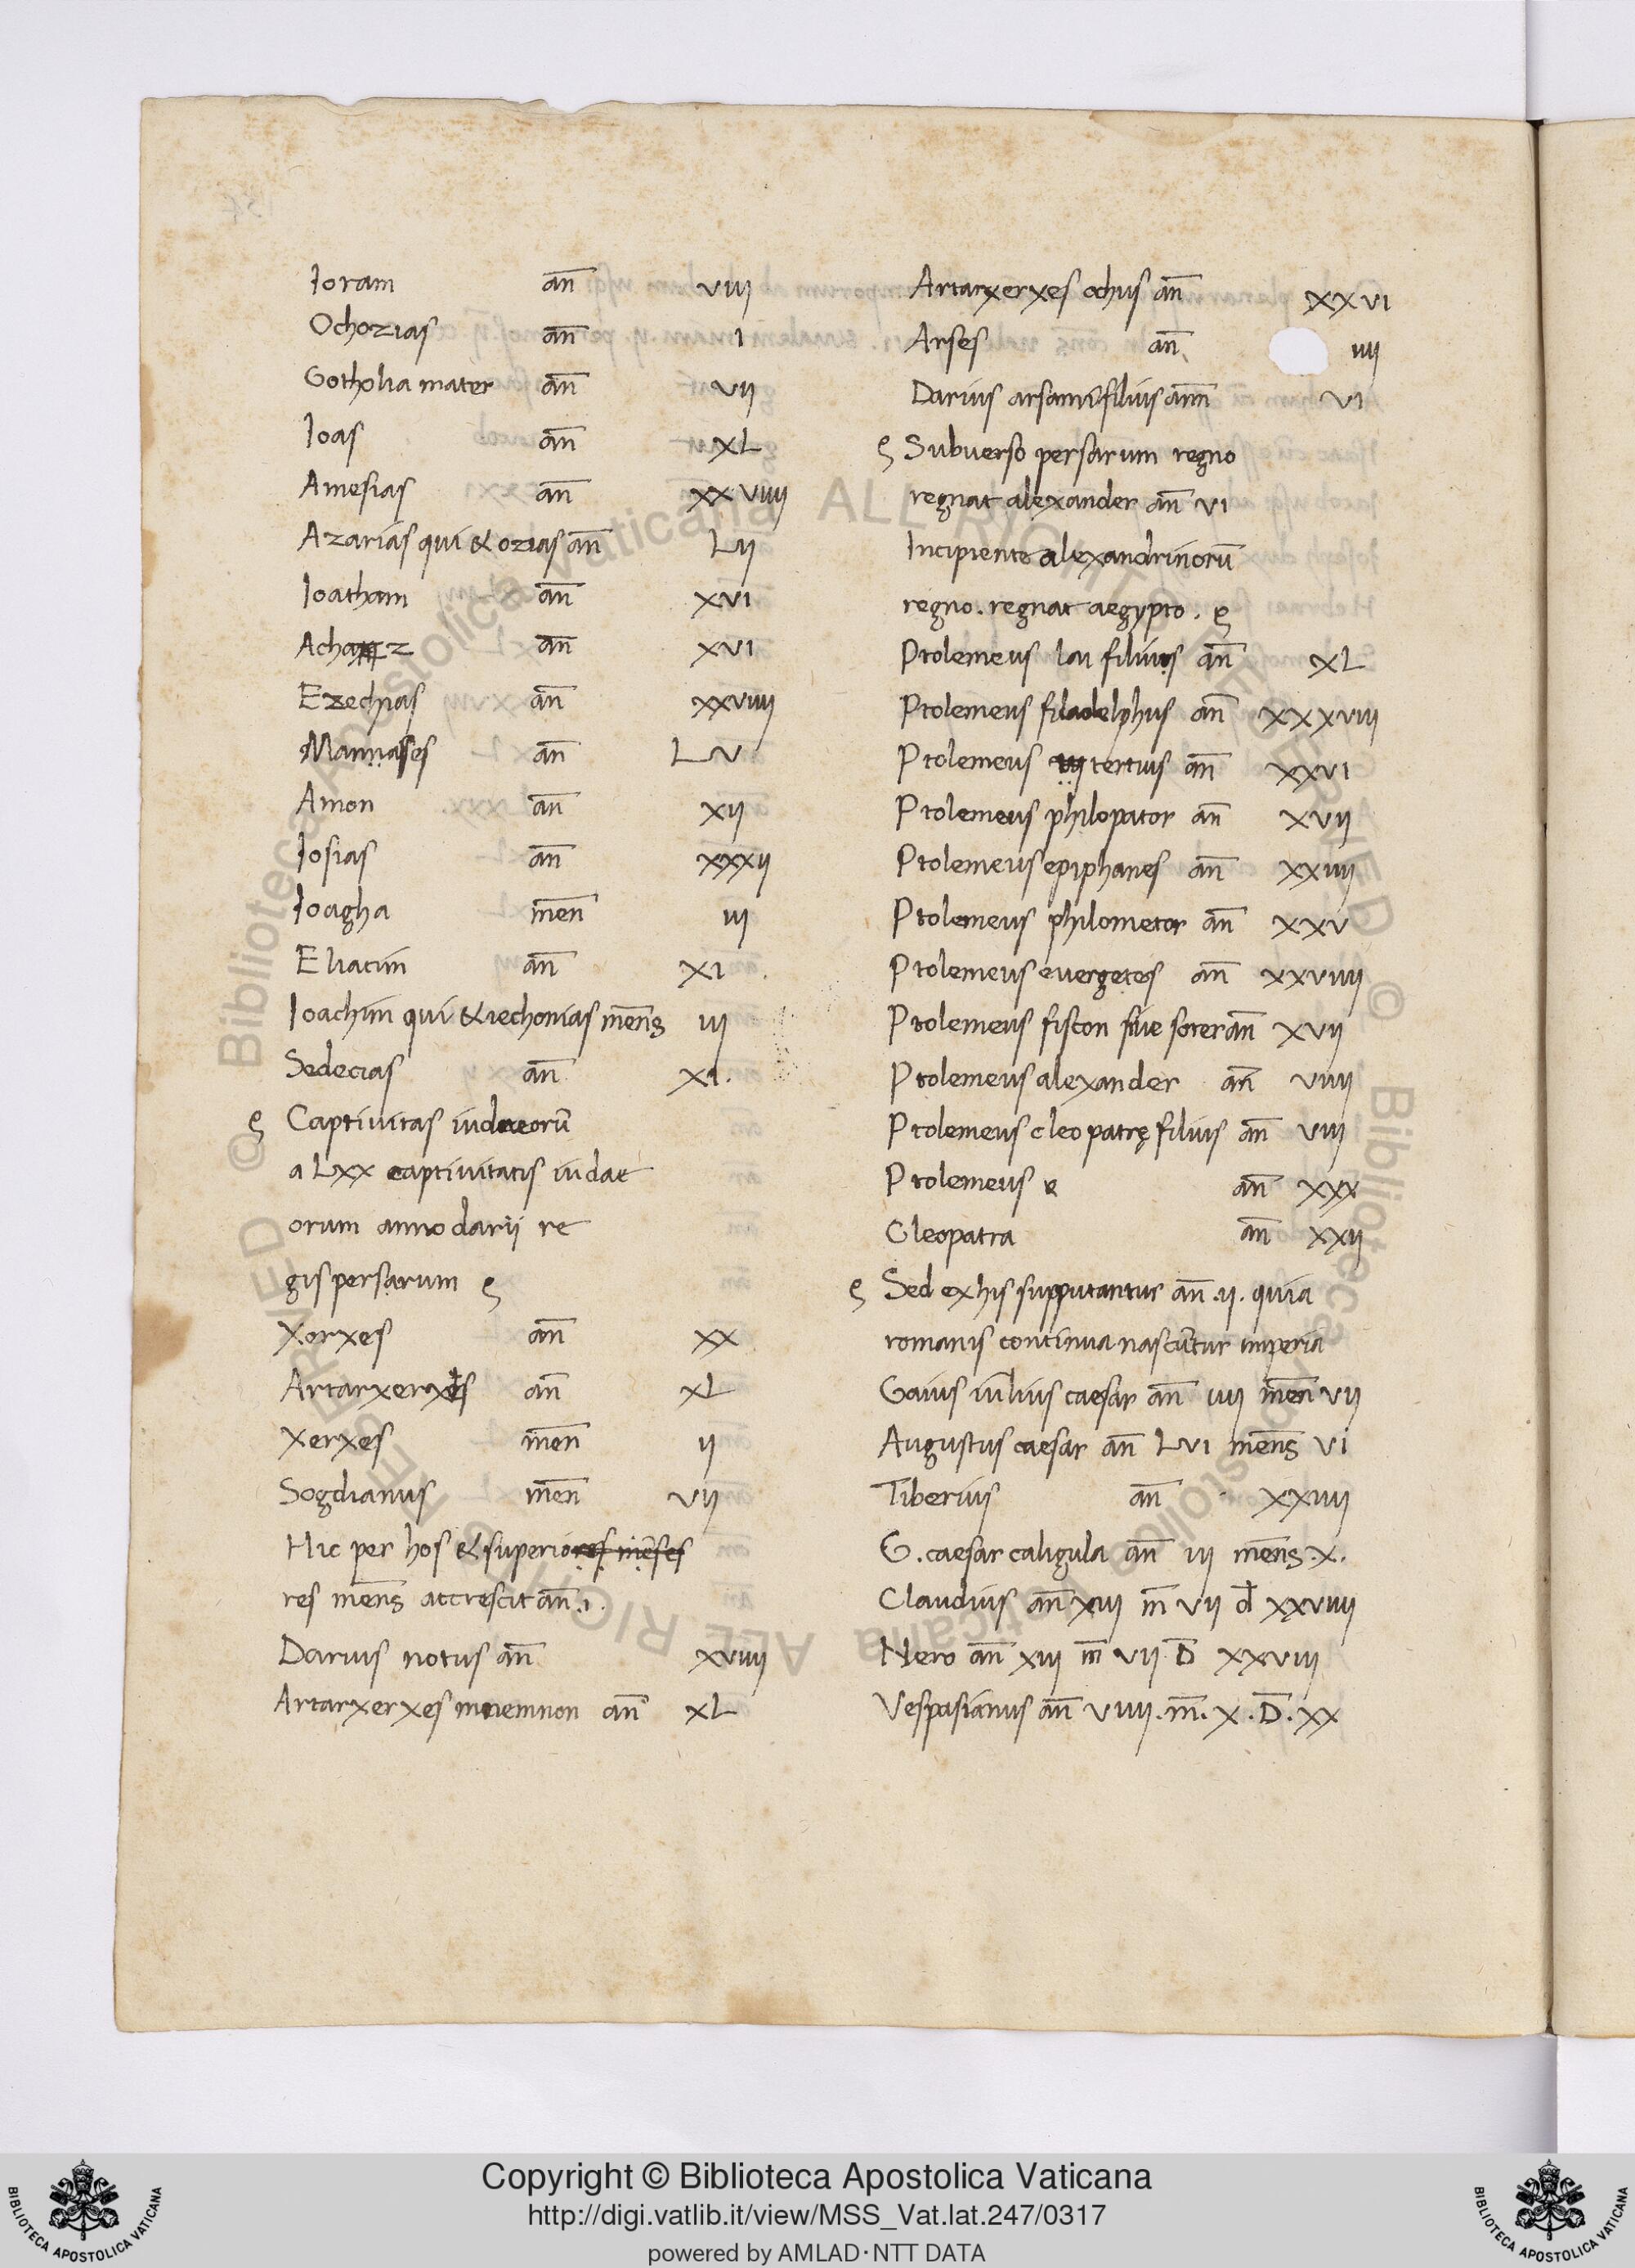 Ioram an̄ viij
Ochozias an̄ i
Gotholia mater an̄ vij
Ioas an̄ xL
Amesias an̄ xxviiij
Azarias qui & ozias an̄ Lij
Ioatham an̄ xvi
Achaz an̄ xvi
Ezechias an̄ xxviiij
Mannases an̄ Lv
Amon an̄ xij
Iosias an̄ xxxij
Ioagha men̄ iij
Eliacim an̄ xi
Ioachim qui & iechonias men̄s iij
Sedecias an̄ xi.
Captivitas iudaeorū
a Lxx captivitatis iudae
orum anno darii re
gis persarum
Xerxes an̄ xx
Artarxerxes an̄ xL
Xerxes men̄ ij
Sogdianus men̄ vij
Hic per hos & superiores mēses
res men̄s accrescit an̄.i.
Darius notus an̄ xviiij
Artarxerxes mnemnon an̄ xL
Artarxerxes ochus an̄ xxvi
Arses an̄ iiij
Darius arsami filius ann̄ vi
Subverso persarum regno
regnat alexander an̄ vi
Incipiente alexandrinorū
regno. regnat aegypto.
Ptolemeus lai filius an̄ xL
Ptolemeus filadelphus an̄ xxxviij
Ptolemeus tertius an̄ xxvi
Ptolemeus philopator an̄ xvij
Ptolemeus epiphanes an̄ xxiiij
Ptolemeus philometor an̄ xxv
Ptolemeus evergetes an̄ xxviiij
Ptolemeus fiscon sive soter an̄ xvij
Ptolemeus alexander an̄ viiij
Ptolemeus cleopatrę filius an̄ viij
Ptolemeus an̄ xxx
Cleopatra an̄ xxij
Sed ex his supputantur an̄.ij. quia
romanis continua nascūtur imperia
Gaius iulius caesar an̄ iiij men̄ vij
Augustus caesar an̄ Lvi men̄s vi
Tiberius an̄ xxiiij
G. caesar caligula an̄ iij men̄s.x.
Claudius an̄ xiij m̄ vij d̄ xxviiij
Nero an̄ xiij m̄ vij D̄ xxviij
Vespasianus an̄ viiij.m̄.x.D̄.xx
© Biblioteca Apostolica Vaticana ALL RIGHTS RESERVED © Biblioteca Apostolica Vaticana ALL RIGHTS RESERVED
Copyright © Biblioteca Apostolica Vaticana
http://digi.vatlib.it/view/MSS_Vat.lat.247/0317
powered by AMLAD·NTT DATA
BIBLIOTECA APOSTOLICA VATICANA
BIBLIOTECA APOSTOLICA VATICANA